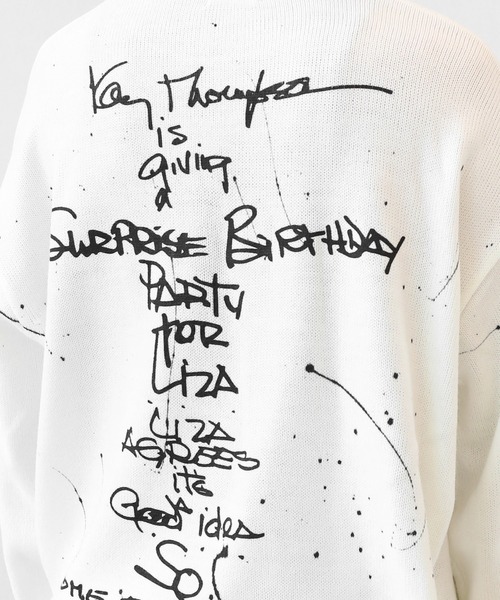 Kay Thompson
is
giving
a
SURPRISE BIRTHDAY
PARTY
FOR
LIZA
LIZA
AGREES
its
Good idea
So!